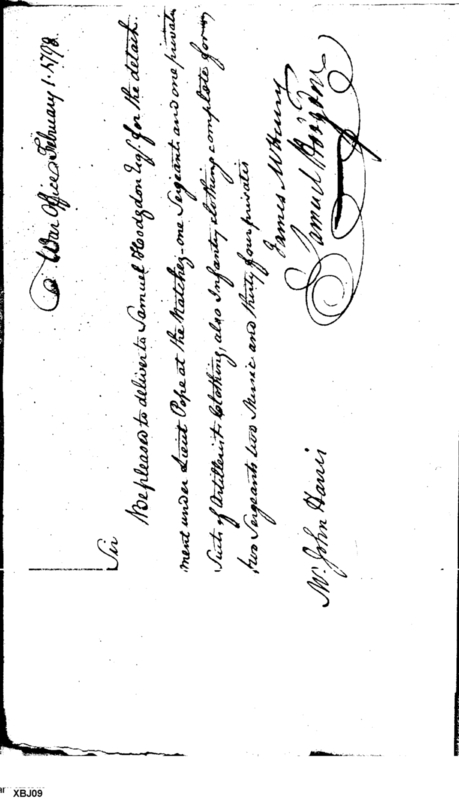 War Office February 1. 1798.
Sir
Be pleased to deliver to Samuel Hodgdon Esqr. for the detach-
ment under Lieut Pope at the Natchez - one Sergeant and one private
Suits of Artillerist Clothing, also Infantry clothing complete for
two Sergeants two Music and thirty four privates
James McHenry
Samuel Hodgdon
Mr. John Harris
XBJ09